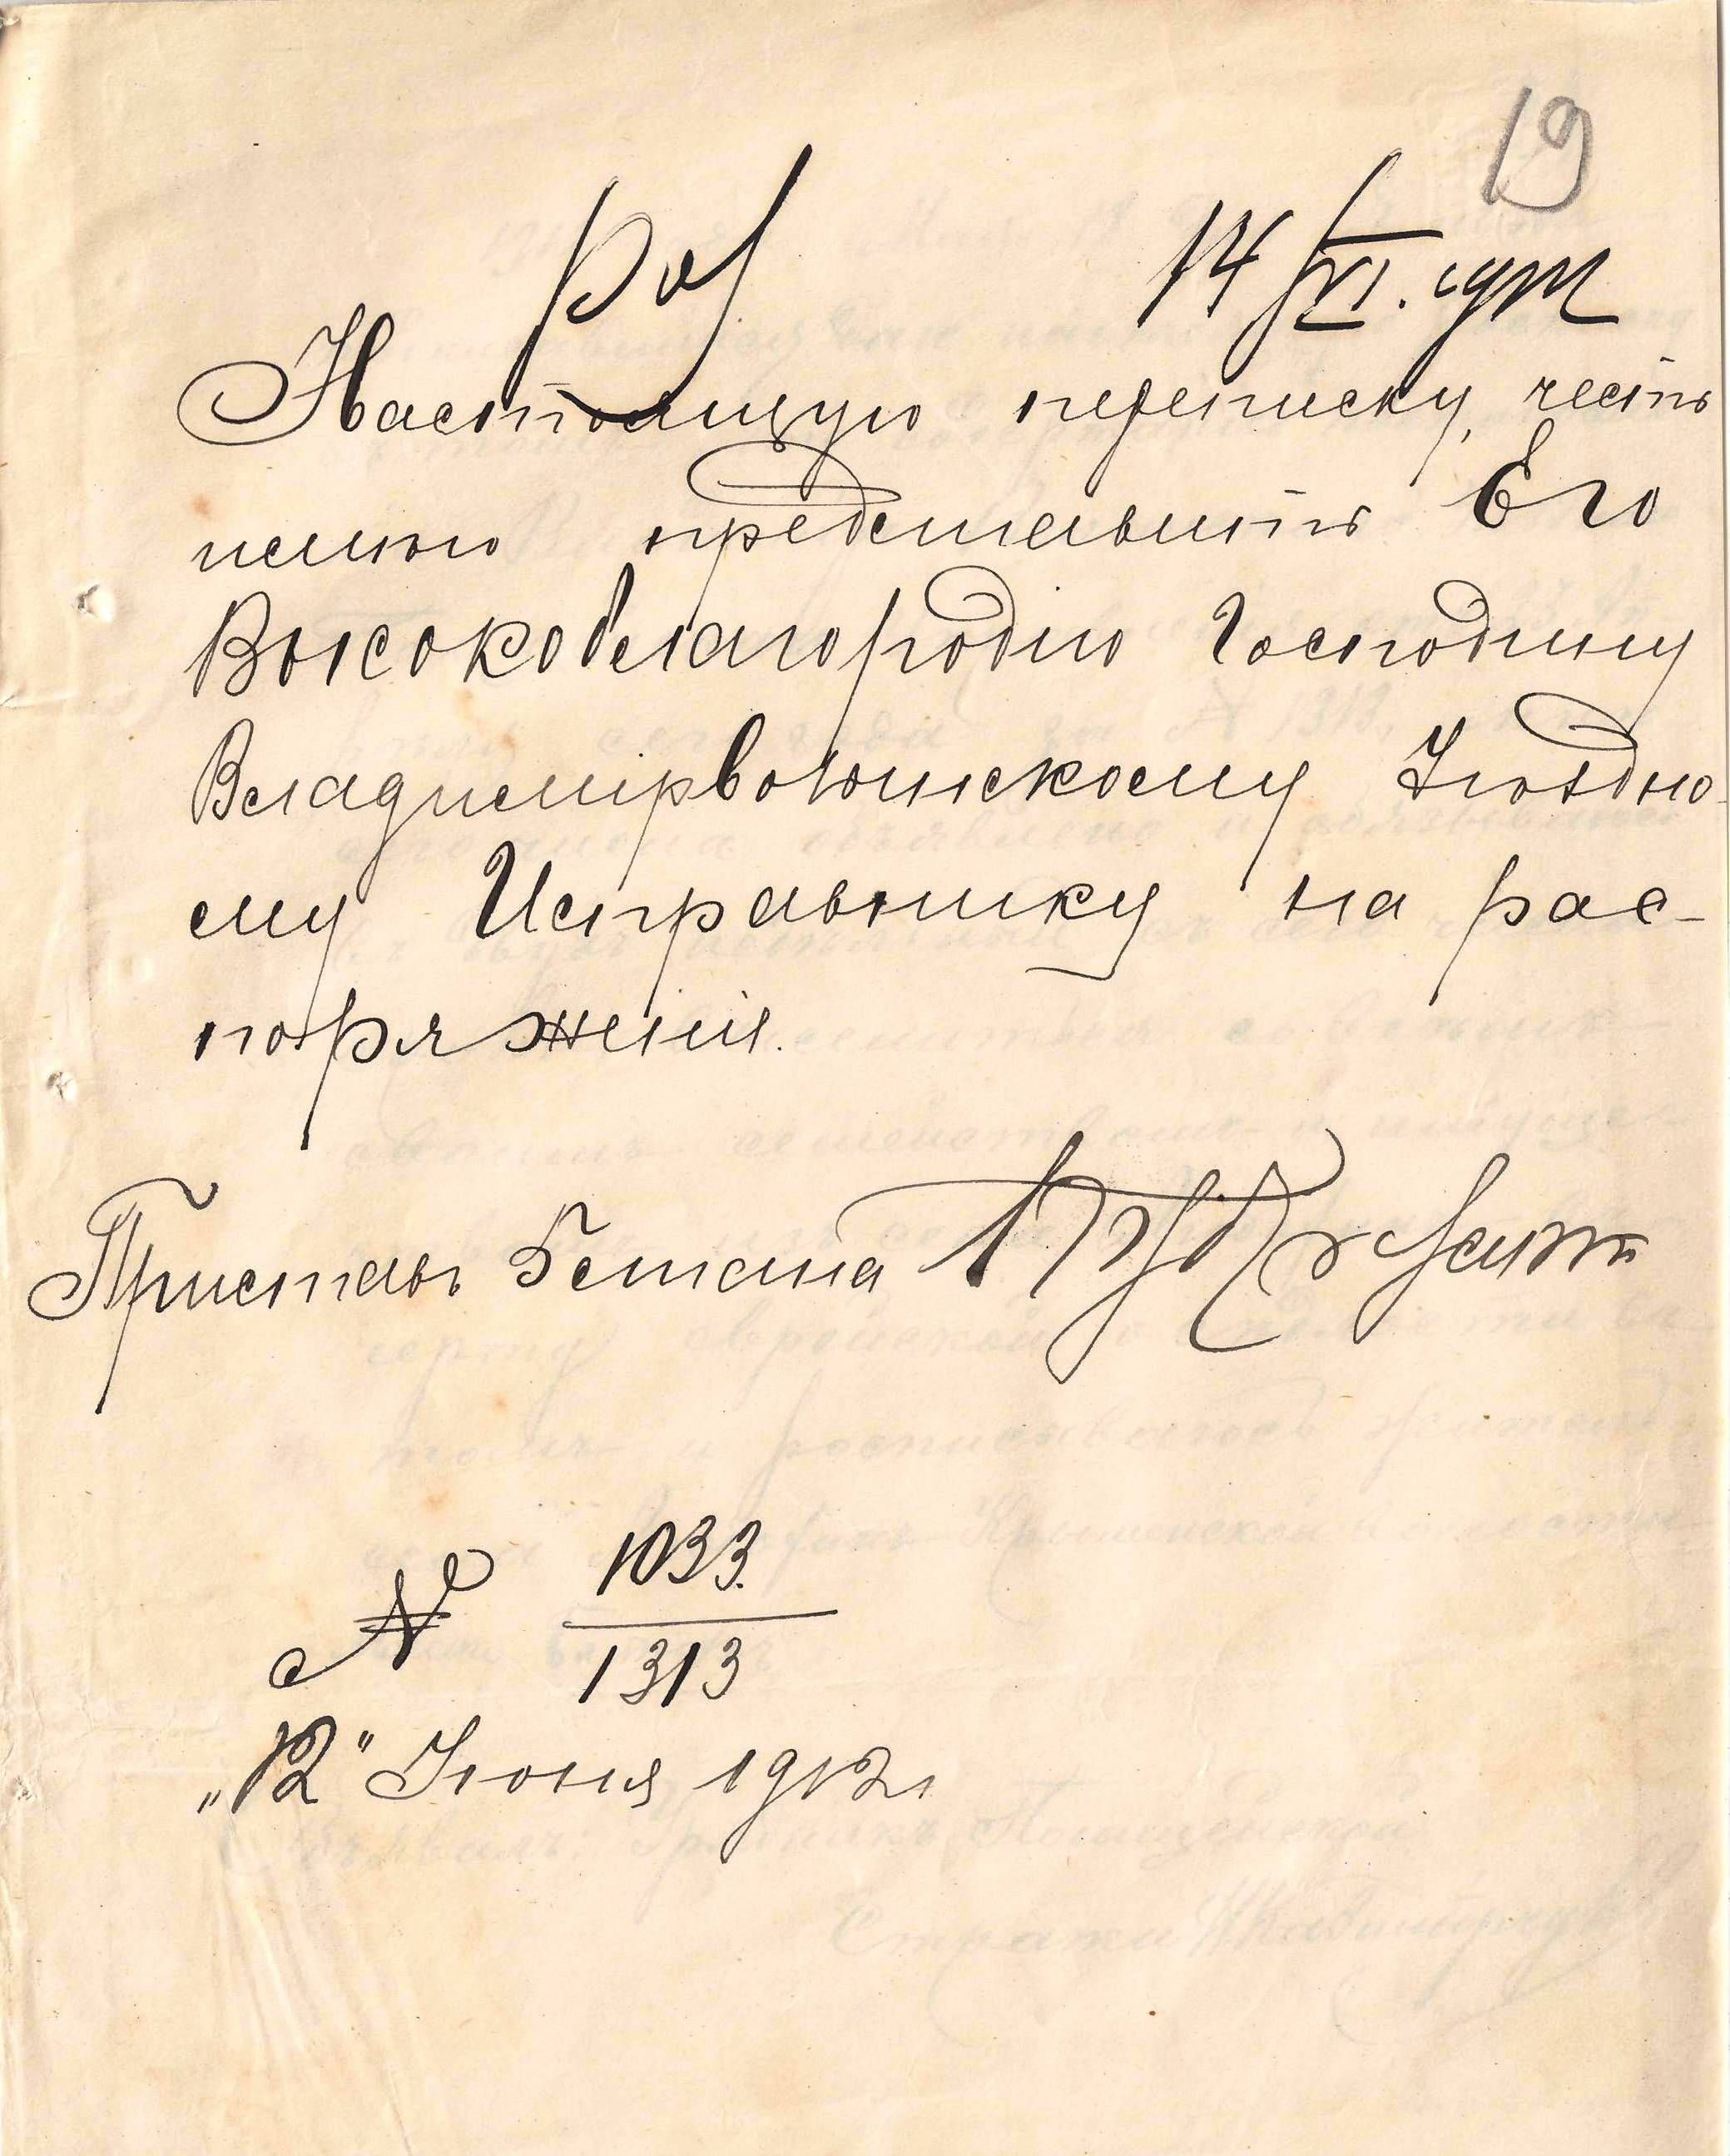 19
14/VI.
Настоящую переписку, честь
имею представить Его
Высокоблагородiю Господину
Владимiрволынскому Уѣздно-
му Исправнику на рас-
поряженiя.
Приставъ 5 стана
№ 1033.
1313
„12" Iюня 1912 г